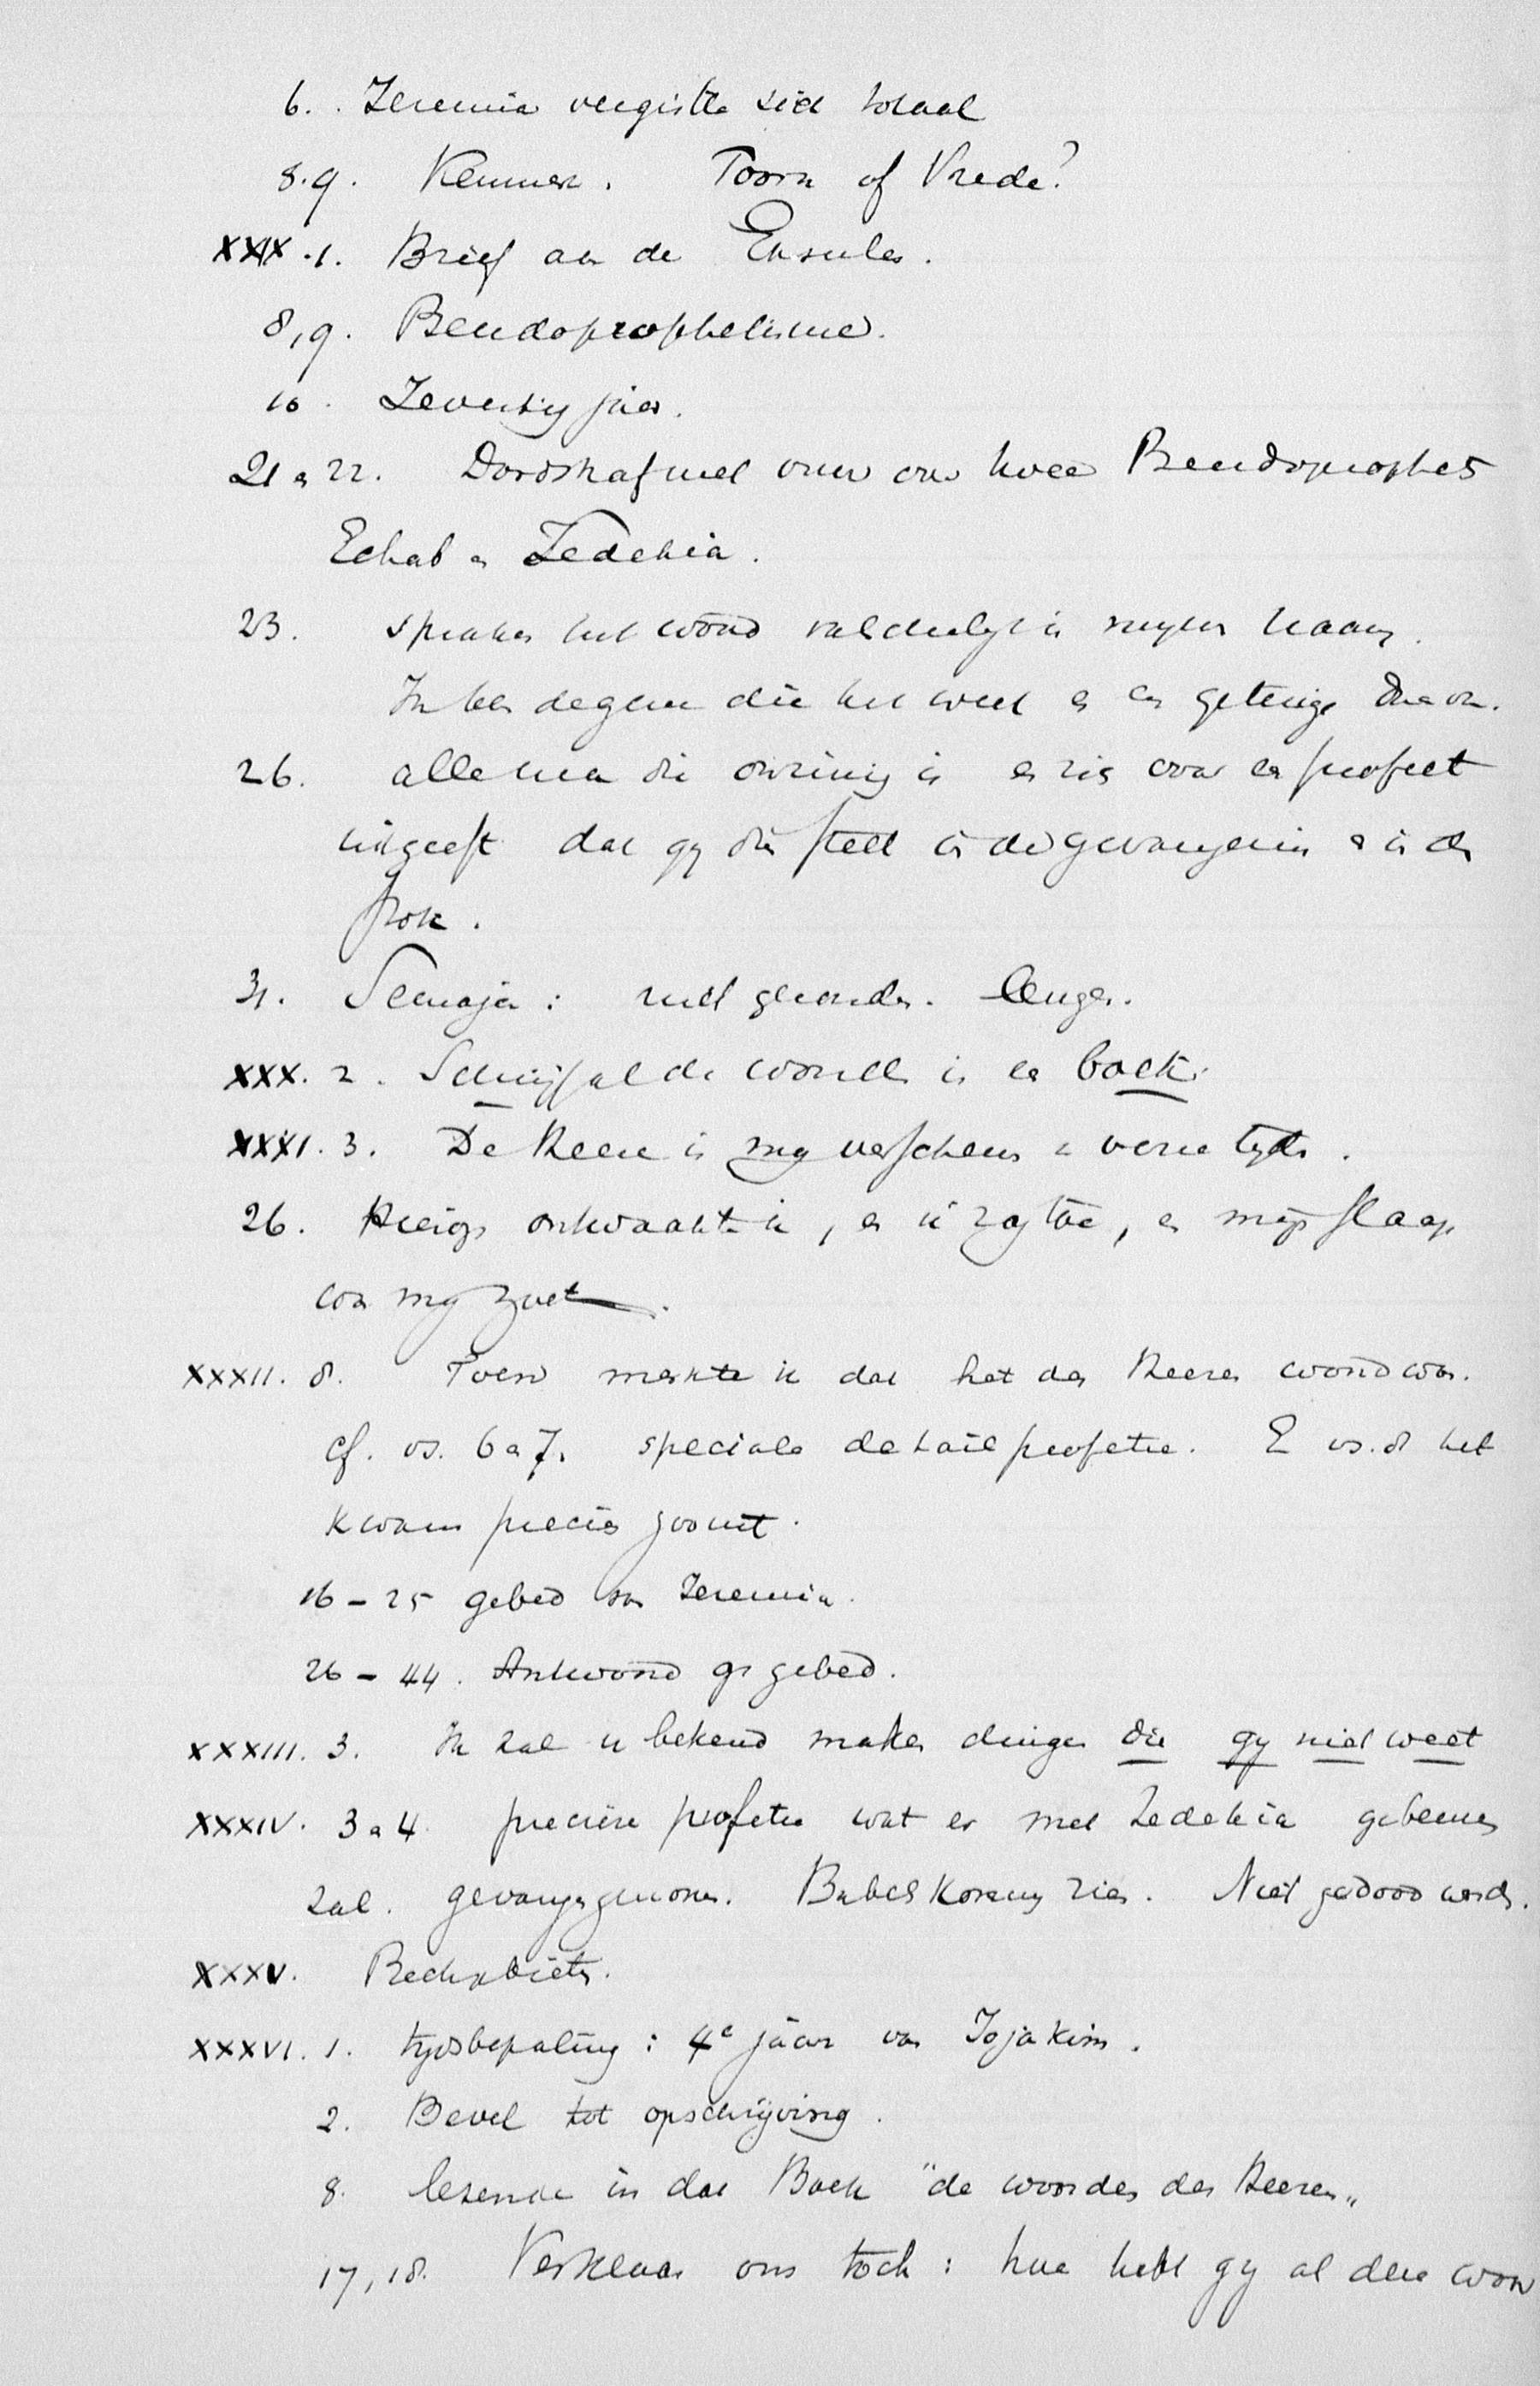 6. Jeremia vergiste zich totaal
8.9. Kenmerk. Toorn of Vrede?
XXIX.1. Brief aan de Exsules.
8,9. Pseudoprophetisme.
10. Zeventig jaar.
21 en 22. Doodstraf met vuur over twee Pseudopropheten
Echab en Zedekia.
23. spreken het woord valschelyk in mynen naam.
Ik ben degene die het weet en een getuige daarvan.
26. alle man die onzinnig is en zich voor een profeet
uitgeeft dat gy dien stelt in de gevangenis en in den
stok.
31. Semaja: niet gezonden. Leugen.
XXX. 2. Schrijf al de woorden in een boek.
XXXI. 3. De Heere is my verschenen van verre tyden.
26. Hierop ontwaakte ik, en ik zag toe, en mijn slaap
was my zoet.
XXXII. 8. Toen merkte ik dat het des Heeren woord was.
cf. vs. 6 en 7. speciale detailprofetie. En vs. 8 het
kwam precies zoo uit.
16 – 25 gebed van Jeremia.
26 – 44. Antwoord op gebed.
XXXIII. 3. Ik zal u bekend maken dingen die gy niet weet
XXXIV. 3 en 4. precieze profetie wat er met Zedekia gebeuren
zal. gevangengenomen. Babels Koning zien. Niet gedood worden.
XXXV. Rechabieten.
XXXVI. 1. tydsbepaling: 4e jaar van Jojakim.
2. Bevel tot opschrijving.
8. lezende in dat Boek "de woorden des Heeren"
17, 18. Verklaar ons toch: hoe hebt gy al deze woor